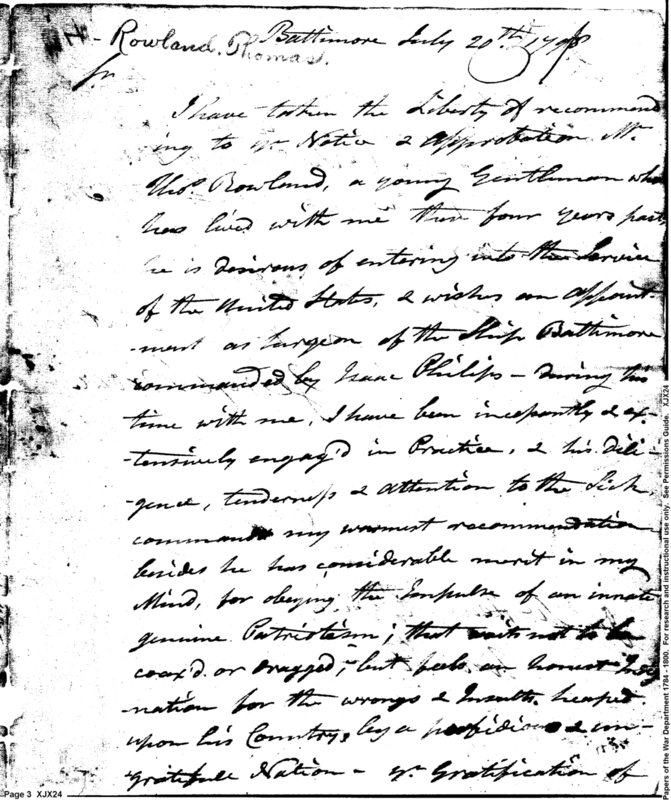 Rowland. Thomas.
Baltimore July 20th. 1798
Sr
I have taken the Liberty of recommend
ing to yr. Notice & approbation Mr.
Thos. Rowland, a young Gentleman who
has lived with me these four years past,
he is desirous of entering into the Service
of the United States, & wishes an appoint-
-ment as Surgeon of the Ship Baltimore
commanded by Isaac Philips - During his
time with me, I have been incessantly & ex-
-tensively engag'd in Practice, & his dili-
-gence, tenderness & attention to the Sick,
commands my warmest recommendation
besides he has considerable merit in my
Mind, for obeying the Impulse of an innate
genuine Patriotism; that waits not to be
coax'd or dragged, but feels an honest Indig
nation for the wrongs & Insults, heaped
upon his Country, by a perfidious & un-
-grateful Nation - yr. Gratification of
Page 3 XJX24
Papers of the War Department 1784 - 1800. For research and instructional use only. See Permissions Guide. XJX24